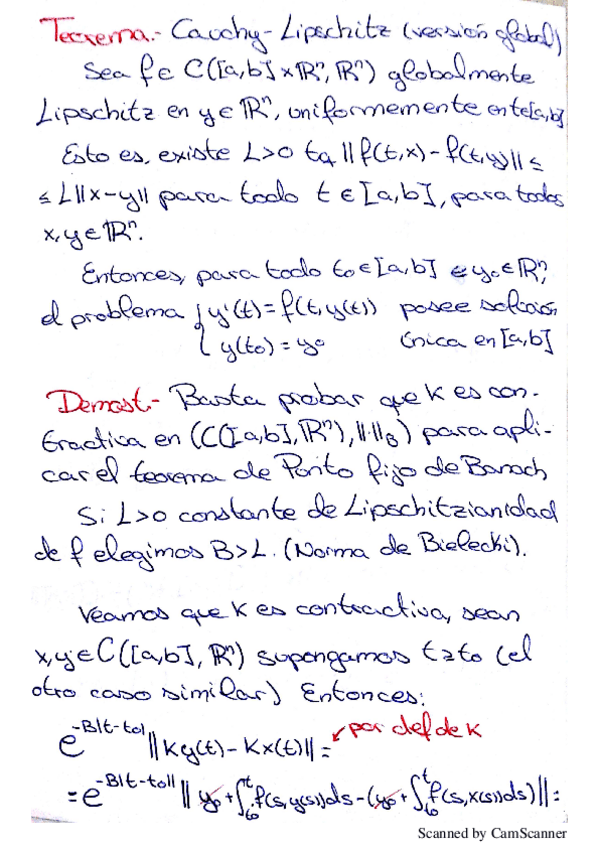 Teorema.- Cauchy-Lipschitz (versión global)
Sea f ∈ C([a,b]×ℝⁿ, ℝⁿ) globalmente
Lipschitz en y∈ℝⁿ, uniformemente en t∈[a,b]
Esto es, existe L>0 tq ||f(t,x)-f(t,y)|| ≤
≤ L||x-y|| para todo t∈[a,b], para todos
x,y∈ℝⁿ.
Entonces, para todo t₀∈[a,b] e y₀∈ℝⁿ,
el problema { y'(t)=f(t,y(t)) posee solución
y(t₀) = y₀ única en [a,b]
Demost.- Basta probar que K es con-
tractiva en (C([a,b],ℝⁿ),||·||_B) para apli-
car el teorema de Punto fijo de Banach
Si L>0 constante de Lipschitzianidad
de f elegimos B>L. (Norma de Bielecki).
Veamos que K es contractiva, sean
x,y∈C([a,b], ℝⁿ) supongamos t≥t₀ (el
otro caso similar) Entonces:
e^{-B|t-t₀|} ||Ky(t)-Kx(t)|| = por def de K
= e^{-B|t-t₀|} || y₀ + ∫_{t₀}^{t} f(s,y(s))ds - (y₀ + ∫_{t₀}^{t} f(s,x(s))ds) || =
Scanned by CamScanner